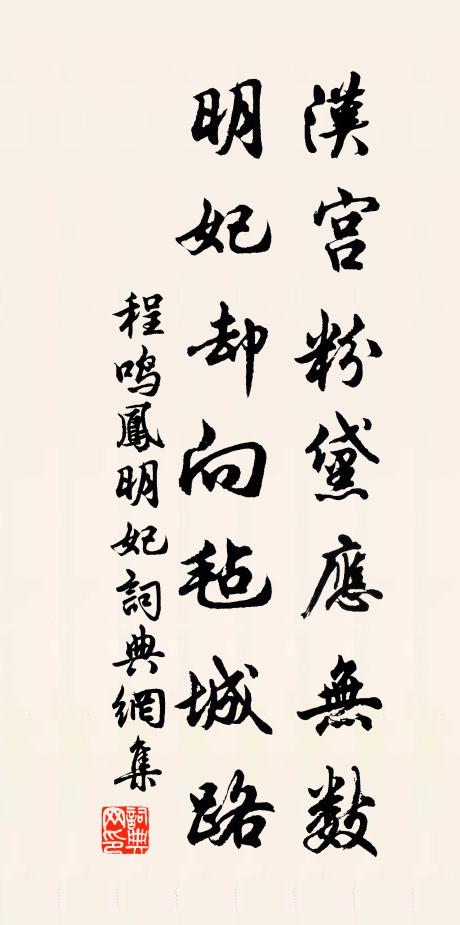 漢宮粉黛應無數
明妃却向毡城路
程鳴鳳明妃詞典網集
詞典网印